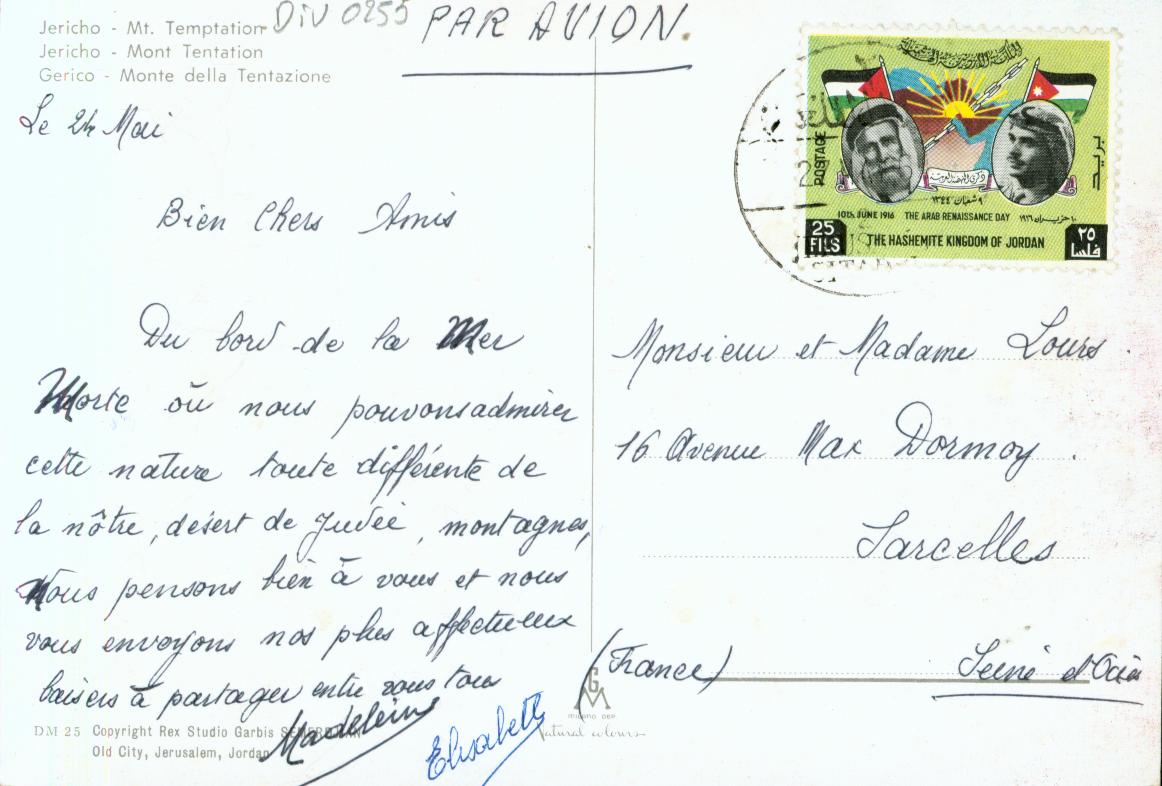 Jericho - Mt. Temptation
Jericho - Mont Tentation
Gerico - Monte della Tentazione
DIV 0255
PAR AVION.
Le 24 Mai
Bien Chers Amis
Du bord de la Mer
Morte où nous pouvons admirer
cette nature toute différente de
la nôtre, désert de Judée, montagnes,
Nous pensons bien à vous et nous
vous envoyons nos plus affectueux
baisers à partager entre vous tous
Madeleine
Elisabeth
DM 25 Copyright Rex Studio Garbis
Old City, Jerusalem, Jordan
POSTAGE
بريد
ذكرى النهضة العربية
٩ شعبان ١٣٤٤
10th JUNE 1916 THE ARAB RENAISSANCE DAY ١٠ حزيران ١٩١٦
25 FILS THE HASHEMITE KINGDOM OF JORDAN ٢٥ فلسا
Monsieur et Madame Lours
16 Avenue Max Dormoy.
Sarcelles
(France) Seine et Oise
GM
MILANO DEP.
Natural colours